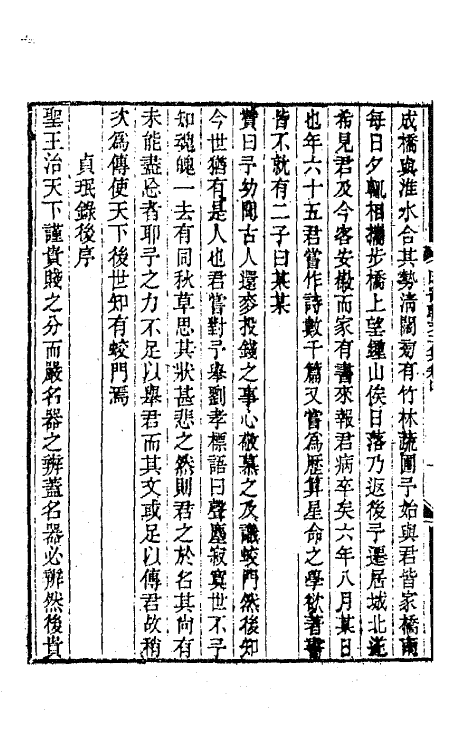 成橋與淮水合其勢清闊菊有竹林蔬圃予始與君皆家橋南
每日夕輒相攜步橋上望鍾山俟日落乃返後予遷居城北遂
希見君及今客安徽而家有書來報君病卒矣六年八月某日
也年六十五君嘗作詩數千篇又嘗為歷算星命之學欲著書
皆不就有二子曰某某
贊曰予幼聞古人還麥投錢之事心敬慕之及識蛟門然後知
今世猶有是人也君嘗對予舉劉孝標語曰聲塵寂寞世不予
知魂魄一去有同秋草思其狀甚悲之然則君之於名其尚有
未能盡忘者耶予之力不足以舉君而其文或足以傳君故稍
次為傳使天下後世知有蛟門焉
貞珉錄後序
聖王治天下謹貴賤之分而嚴名器之辨蓋名器必辨然後貴